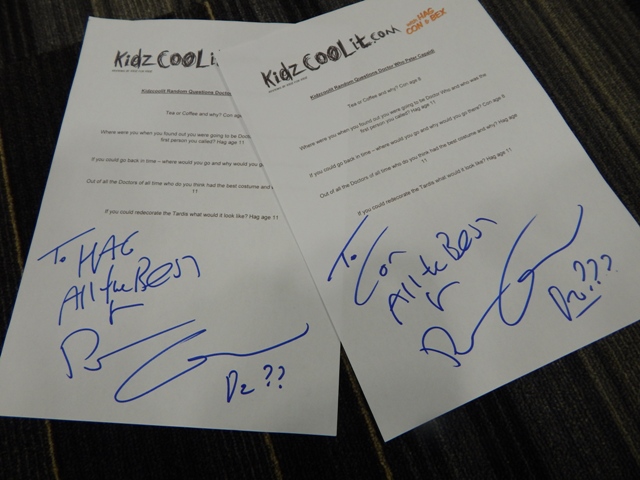 Kidz COOLit
Kidzcoolit Random Questions Doctor
Tea or Coffee and why? Con age
Where were you when you found out you were going to be Doc
first person you called? Hag age 11
If you could go back in time – where would you go and why would you g
Out of all the Doctors of all time who do you think had the best costume and
11
If you could redecorate the Tardis what would it look like? Hag age 11
To HAG
All the Best
Dr ??
Kidz COOLit.com
WITH HAG
CON & BEX
Kidzcoolit Random Questions Doctor Who Peter Capaldi
Tea or Coffee and why? Con age 8
Where were you when you found out you were going to be Doctor Who and who was the
first person you called? Hag age 11
If you could go back in time – where would you go and why would you go there? Con age 8
Out of all the Doctors of all time who do you think had the best costume and why? Hag age
11
If you could redecorate the Tardis what would it look like? Hag age 11
To Con
All the Best
Dr ???